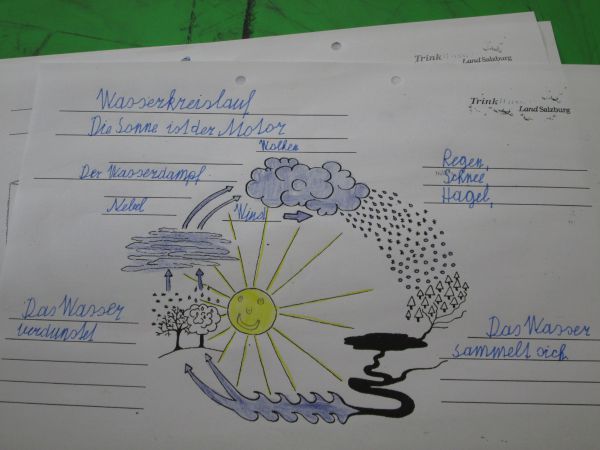 Trink
Land Salzburg
Trink
Land Salzburg
Wasserkreislauf
Die Sonne ist der Motor
Wolken
Der Wasserdampf
Nebel
Wind
Regen,
Schnee
Hagel,
Das Wasser
verdunstet
Das Wasser
sammelt sich